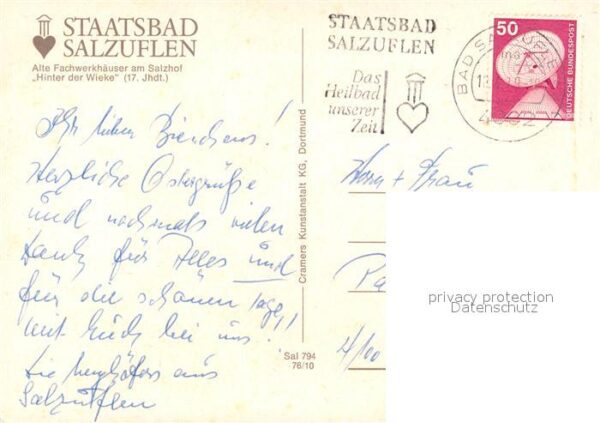 STAATSBAD
SALZUFLEN
Alte Fachwerkhäuser am Salzhof
„Hinter der Wieke" (17. Jhdt.)
STAATSBAD
SALZUFLEN
Das
Heilbad
unserer
Zeit
BAD SALZUFLEN
50
DEUTSCHE BUNDESPOST
Ihr lieben
Herzliche Ostergrüße
und nochmals vielen
Dank für Alles und
für die schönen Tage,
mit Euch bei uns!
aus
Salzuflen
Cramers Kunstanstalt KG, Dortmund
Sal 794
76/10
Herrn + Frau
privacy protection
Datenschutz